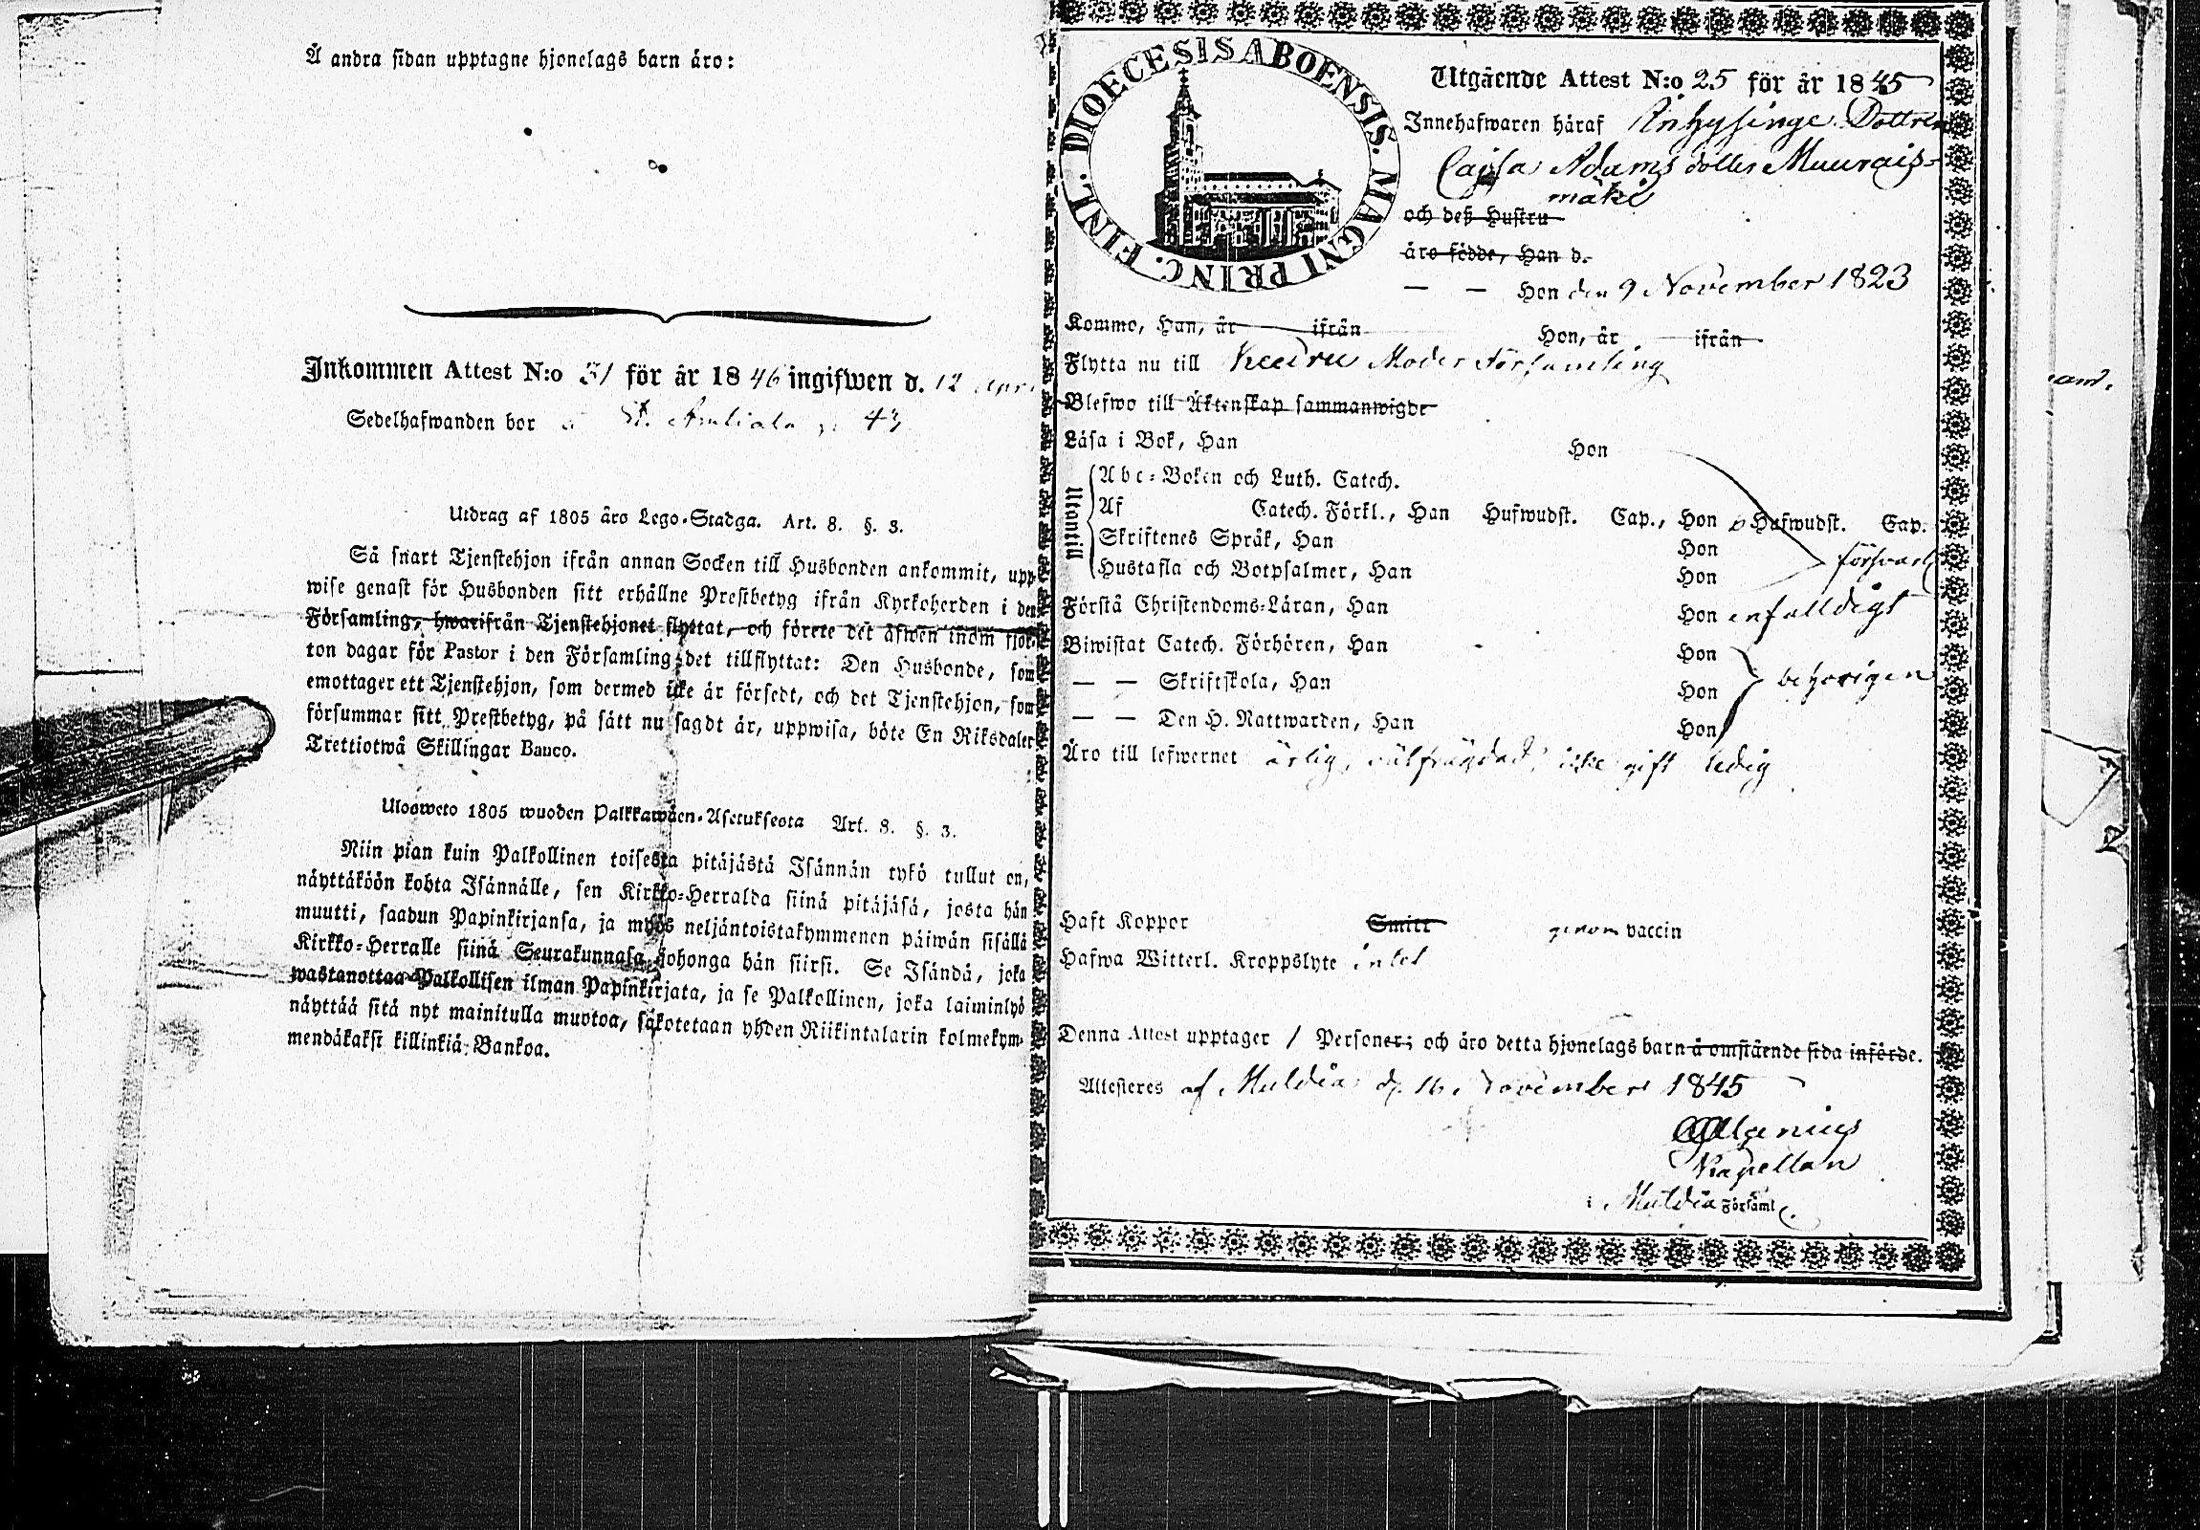 Å andra sidan upptagne hjonelags barn äro:
Inkommen Attest N:o 31 för år 1846 ingifwen d. 12
Sedelhafwanden bor
Utdrag af 1805 års Lego-Stadga. Art. 8. §. 3.
Så snart Tjenstehjon ifrån annan Socken till Husbonden ankommit, upp-
wise genast för Husbonden sitt erhållne Prestbetyg ifrån Kyrkoherden i den
Församling, hwarifrån Tjenstehjonet flyttat, och förete det äfwen inom fjor-
ton dagar för Pastor i den Församling det tillflyttat: Den Husbonde, som
emottager ett Tjenstehjon, som dermed icke är försedt, och det Tjenstehjon, som
försummar sitt Prestbetyg, på sätt nu sagdt är, uppwisa, böte En Riksdaler
Trettiotwå Skillingar Banco.
Ulosweto 1805 wuoden Palkkawäen-Asetuksesta Art. 8. §. 3.
Niin pian kuin Palkollinen toisesta pitäjästä Isännän tykö tullut on,
näyttäköön kohta Isännälle, sen Kirkko-Herralda siinä pitäjäsä, josta hän
muutti, saadun Papinkirjansa, ja myös neljäntoistakymmenen päiwän sisällä
Kirkko-Herralle siinä Seurakunnasa, johonga hän siirsi. Se Isändä, joka
wastanottaa Palkollisen ilman Papinkirjata, ja se Palkollinen, joka laiminlyö
näyttää sitä nyt mainitulla muotoa, sakotetaan yhden Riikintalarin kolmekym-
mendäkaksi killinkiä Bankoa.
DIOECESIS ABOENSIS. MAGNI PRINC. FINL.
Utgående Attest N:o 25 för år 1845
Innehafwaren häraf Inhysinge Dottren
Cajsa Adams dotter Muurais-
mäki
och deß Hustru
äro födde, Han d.
— — Hon den 9 November 1823
Kommo, Han, år ifrån Hon, år ifrån
Flytta nu till Keuru Moder Församling
Blefwo till Äktenskap sammanwigde
Läsa i Bok, Han Hon
Utantill
Abc-Boken och Luth. Catech.
Af Catech. Förkl., Han Hufwudst. Cap., Hon Hufwudst. Cap.
Skriftenes Språk, Han Hon försvarl
Hustafla och Botpsalmer, Han Hon
Förstå Christendoms-Läran, Han Hon enfalldigt
Biwistat Catech. Förhören, Han Hon
— — Skriftskola, Han Hon behörigen
— — Den H. Nattwarden, Han Hon
Äro till lefwernet ärlig, välfrägdad, icke gift ledig
Haft Koppor Smitt genom vaccin
Hafwa Witterl. Kroppslyte intet
Denna Attest upptager 1 Personer; och äro detta hjonelags barn å omstående sida införde.
Attesteres af Muldia d. 16 November 1845
Kapellan
i Muldia Församl.